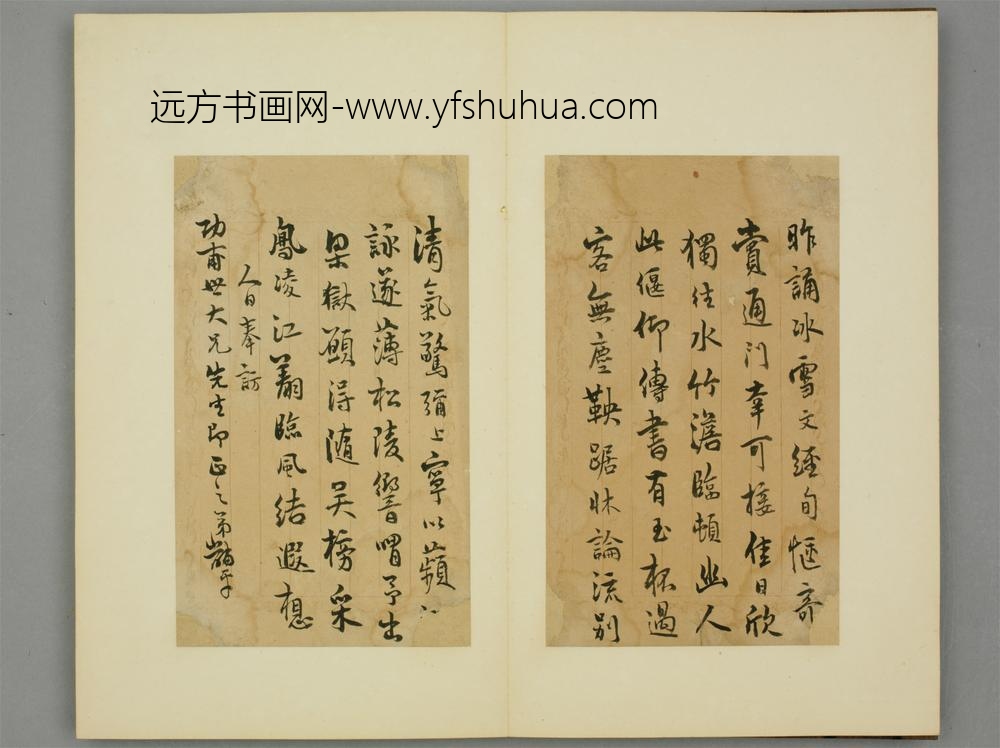 远方书画网-www.yfshuhua.com
昨誦冰雪文經旬愜奇
賞通門幸可接佳日欣
獨往水竹澹臨頓幽人
此偃仰傳書有玉杯過
客無塵鞅踞牀論流別
清氣驚彌上寧以蘋
詠遂薄松陵響喟予出
梁獄願得隨吴榜采
鳧凌江薵臨風結遐想
人日奉訪
功甫世大兄先生即正之弟